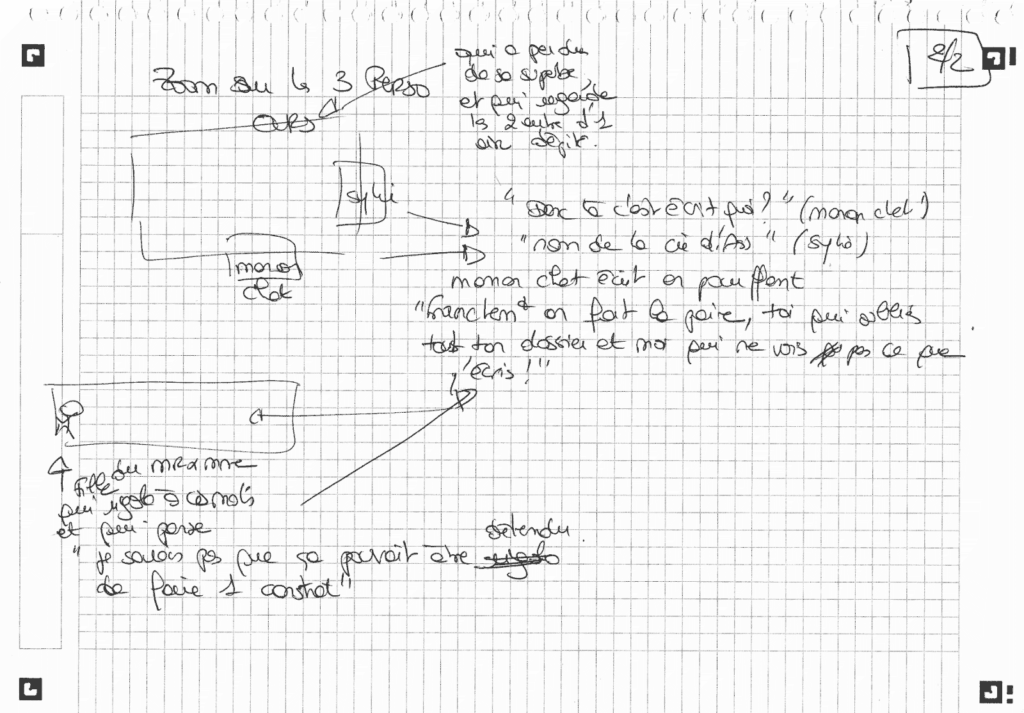 2/2
qui a perdu
de sa superbe,
et qui regarde
les 2 autre d'1
air dépité.
Zoom sur les 3 Perso
Sylvi
"Donc là c'est écrit quoi?" (monor clet!)
"nom de la cie d'Ass" (Sylvi)
monor clet écrit en pouffant
"Franctemt on fait la paire, toi qui oublies
tout ton dossier et moi qui ne vois pas ce que
j'écris!"
monor
clet
Fille du MR & MME
qui rigole à ces mots
et qui pense
"je savais pas que ça pouvait être détendu
de faire 1 constat"